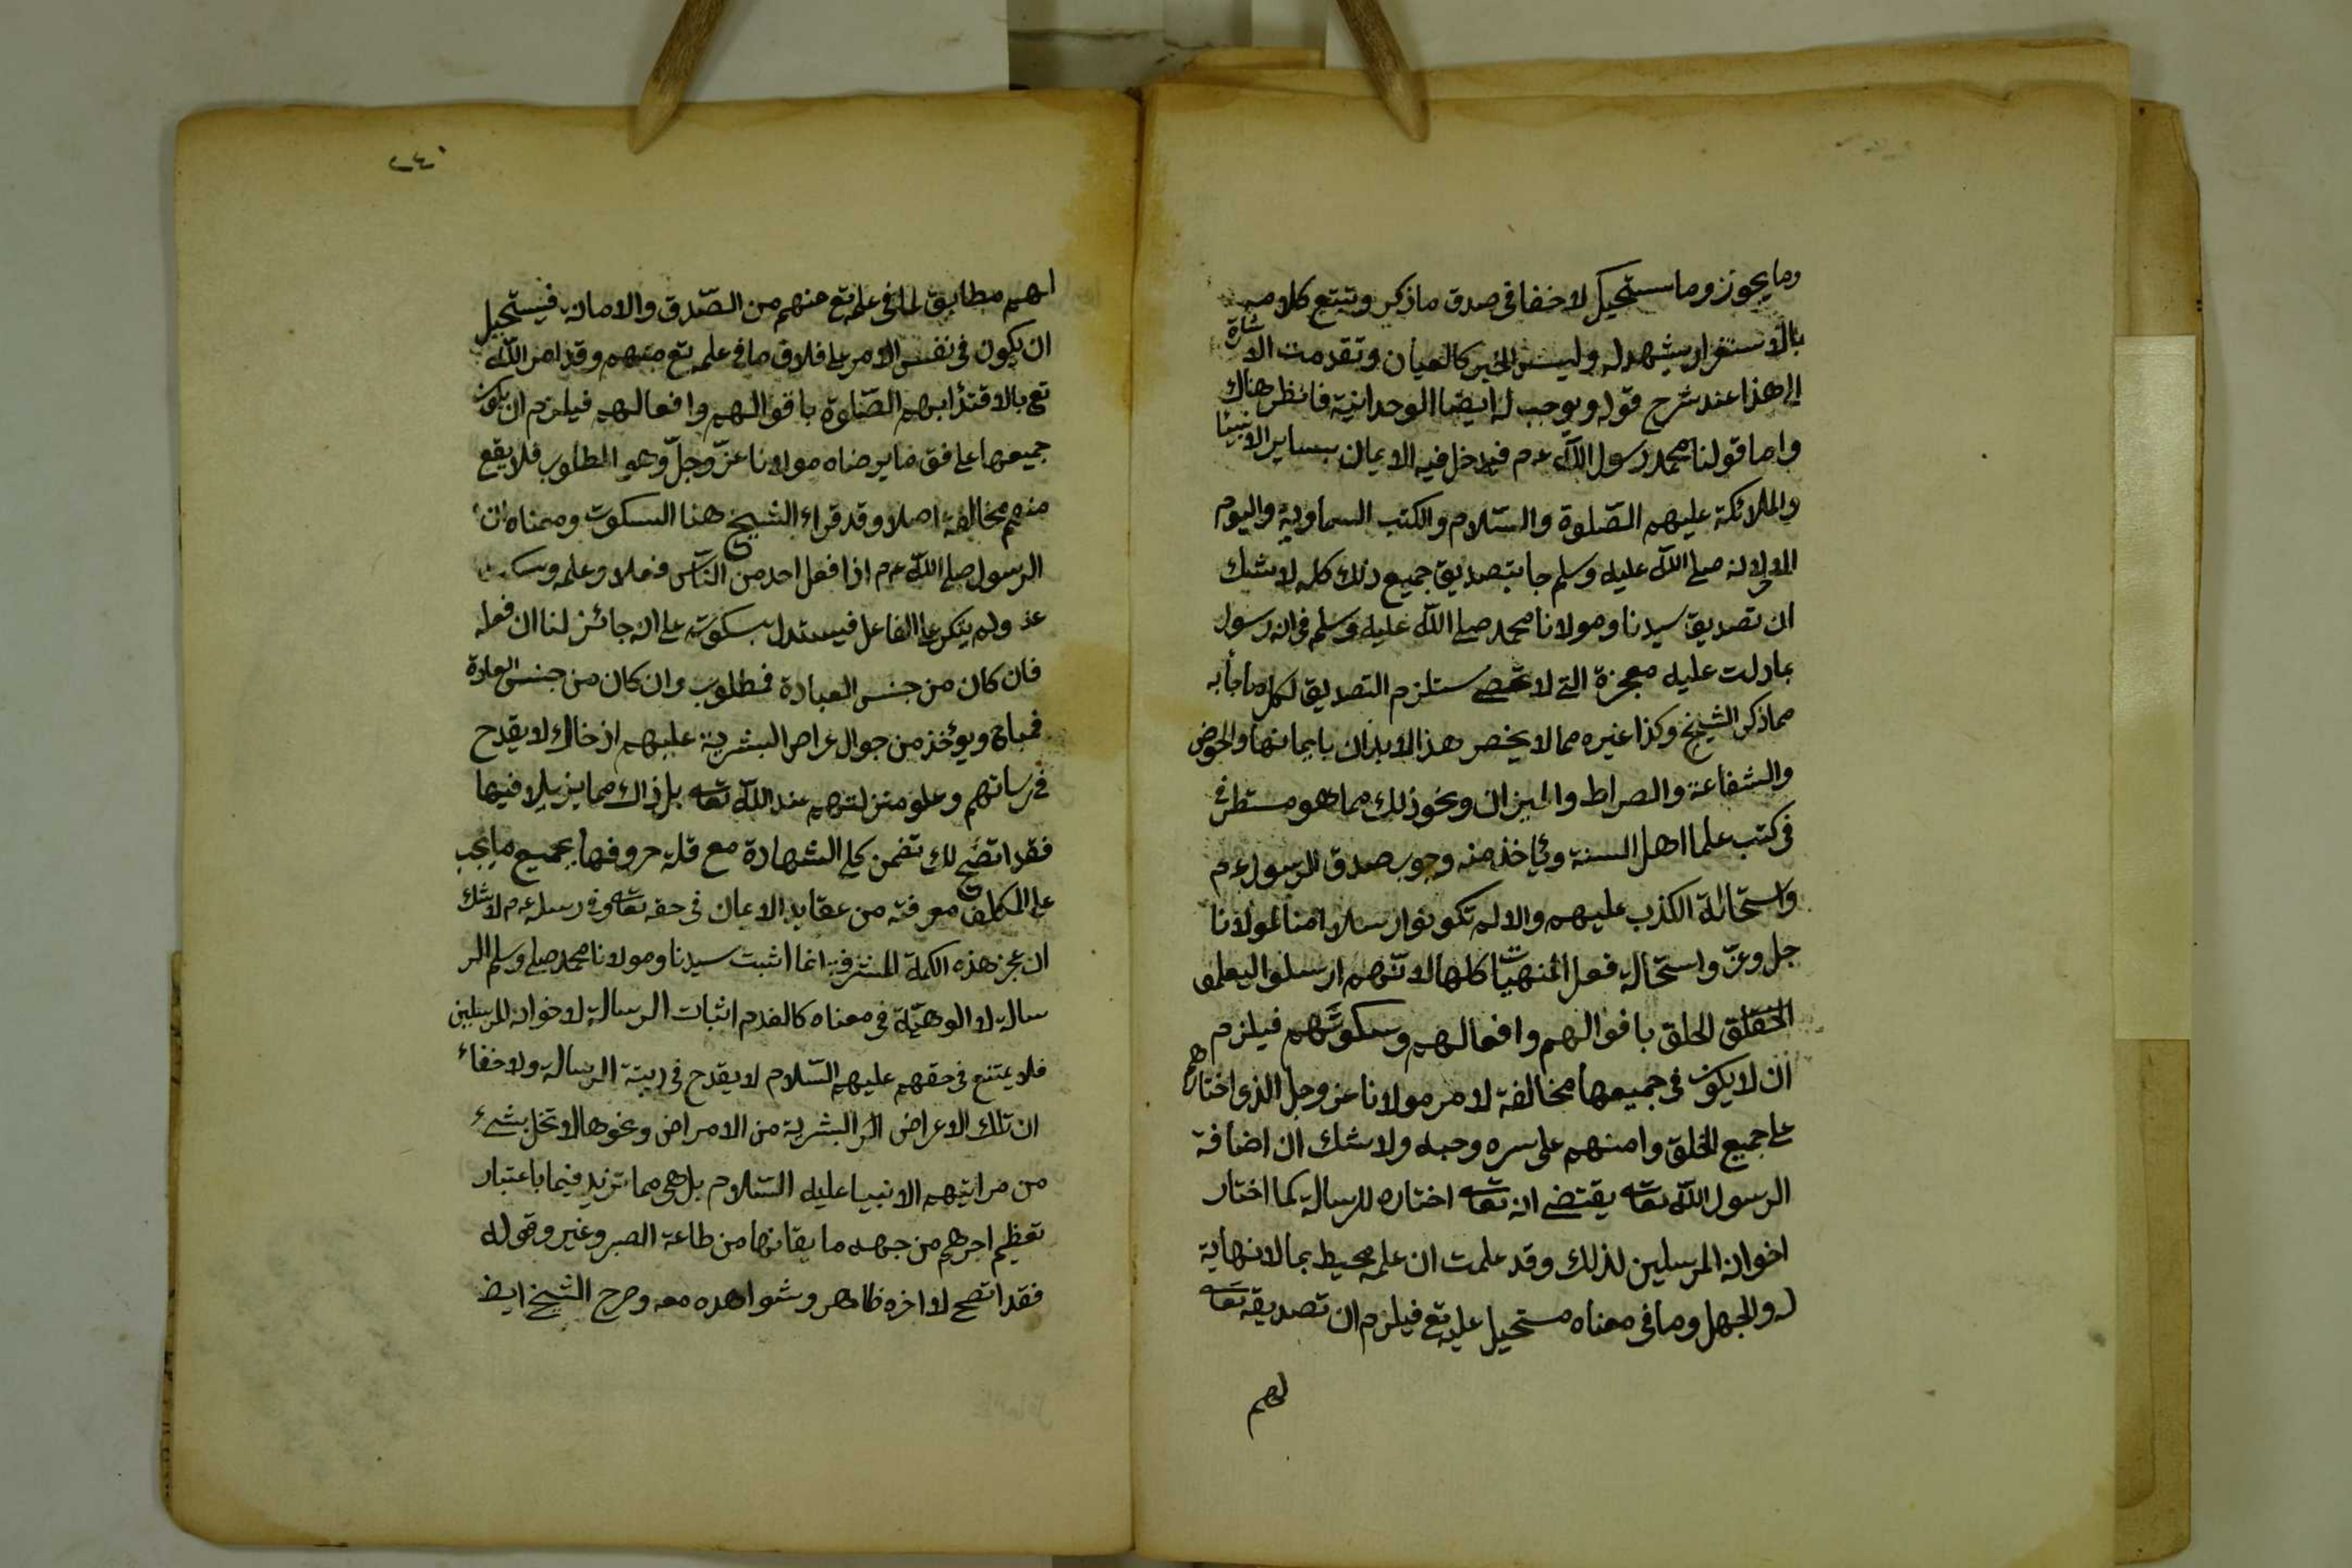 وما يجوز وما يستحيل لا خفا في صدق ما ذكر وتتبع كلامه
بالاستقرار يشهد له وليس الخبر كالعيان وتقدمت الاشارة
الى هذا عند شرح قوله ويوجب له ايضا الوحدانية فانظر هناك
واما قولنا محمد رسول الله عم فيدخل فيه الايمان بساير الانبيا
والملائكة عليهم الصلوة والسلام والكتب السماوية واليوم
الاخر لانه صلى الله عليه وسلم جا بتصديق جميع ذلك كله لا شك
ان تصديق سيدنا ومولانا محمد صلى الله عليه وسلم في انه رسول
بما دلت عليه معجزة التي لا تحصى ستلزم التصديق لكل ما جا به
مما ذكر الشيخ وكذا غيره مما لا يخصر هذا الابدان بايمانها والحوض
والشفاعة والصراط والميزان ونحو ذلك مما هو مستطر في
في كتب علما اهل السنة ويأخذ منه وجوب صدق الرسول عم
واستحالة الكذب عليهم والا لم تكونوا رسلا امنا لمولانا
جل وعز واستحالة فعل المنهيات كلها لانهم ارسلوا ليعلموا
الخلق بافوالهم وافعالهم وسكوتهم فيلزم
ان لا يكون في جميعها مخالفة لامر مولانا عز وجل الذي اختارهم
على جميع الخلق وامنهم على سره وحبه ولا شك ان اضافة
الرسول الله تعالى يقتضى انه تعالى اختاره للرسالة كما اختار
اخوانه المرسلين لذلك وقد علمت ان علمه محيط بما لا نهاية
له والجهل وما في معناه مستحيل عليه تع فيلزم ان تصديقه تعالى
لهم
٢٤٠
لهم مطابق لما في علمه تع منهم من الصدق والامانه فيستحيل
ان يكون في نفس الامر على فلاق ما في علمه تع منهم وقد امر الله
تع بالاقتدا بهم الصلوة باقوالهم وافعالهم فيلزم ان يكون
جميعها على فق ما يرضاه مولانا عز وجل وهو المطلوب فلا يقع
منهم مخالفة اصلا وقد قراء الشيخ هنا السكوت ومعناه ان
الرسول صلى الله عم اذا فعل احد من الناس فعلا وعلمه وسكت
عنه ولم ينكر على الفاعل فيستدل بسكوته على انه جائز لنا ان فعله
فان كان من جنس العبادة فمطلوب وان كان من جنس العادة
فمباح ويؤخذ من جوال عراض البشرية عليهم اذ خاك لا يقدح
في رسالتهم وعلو منزلتهم عند الله تعالى بل ذاك مما يزيد فيها
فقد اتضح لك تضمن كلمة الشهادة مع قلة حروفها بجميع ما يجب
على المكلف معرفته من عقايد الايمان في حقه تعالى وفي رسله عم لا شك
ان عجز هذه الكلمة المشرفة انما اثبت سيدنا ومولانا محمد صلى وسلم الر
سالة لا الوهية في معناه كالقدم اثبات الرسالة لاخوانه المرسلين
فلا يمتنع في حقهم عليهم السلام لا يقدح في ربتة الرسالة ولا خفاء
ان تلك الاعراض البشرية من الامراض ونحوها لا تخل بشيء
من مراتبهم الانبيا عليه السلام بل هي مما تزيد فيها باعتبار
تعظيم اجرهم من جهه ما يقانها من طاعة الصبر وغير وقوله
فقد اتضح لاواخره ظاهر وشواهده معه وصرح الشيخ ايض